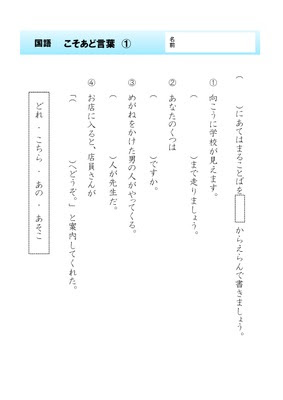 国語 こそあど言葉 ①
名前
(　　　)にあてはまることばを□からえらんで書きましょう。
① 向こうに学校が見えます。
(　　　)まで走りましょう。
② あなたのくつは
(　　　)ですか。
③ めがねをかけた男の人がやってくる。
(　　　)人が先生だ。
④ お店に入ると、店員さんが
「(　　　)へどうぞ。」と案内してくれた。
どれ ・ こちら ・ あの ・ あそこ